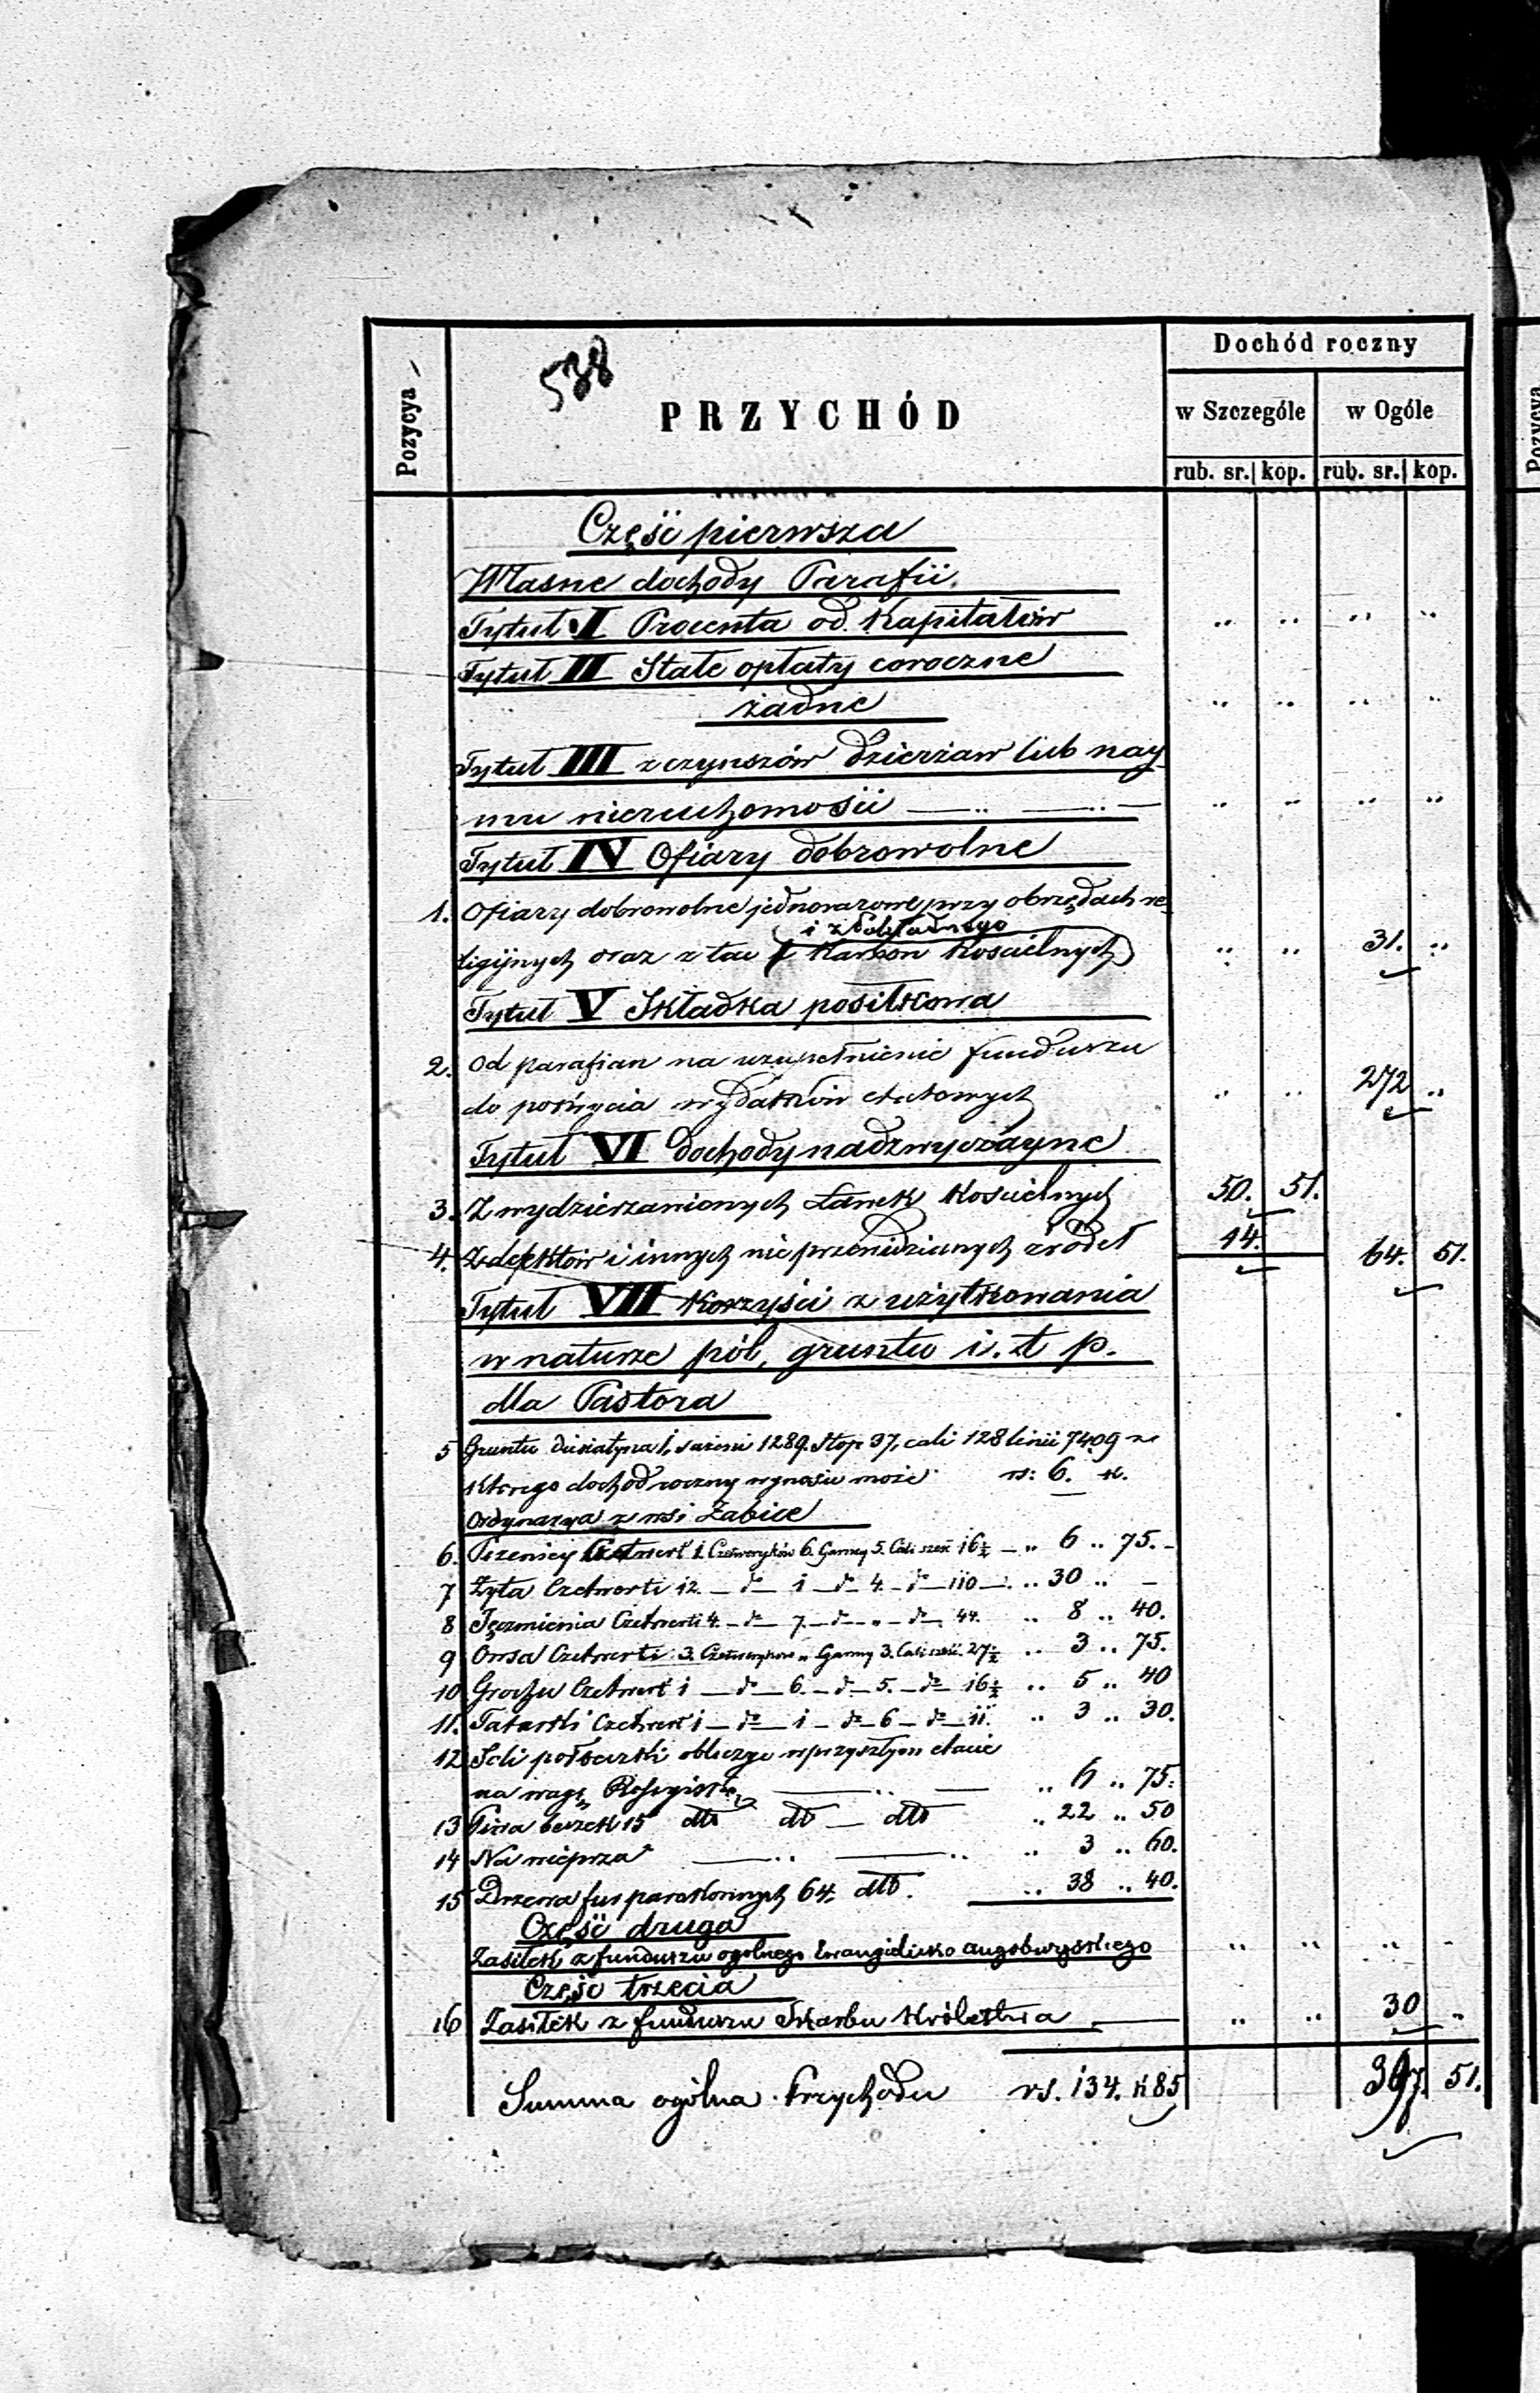 Dochód roczny
538
Pozycya
PRZYCHÓD
w Szczególe
w Ogóle
rub. sr.
kop.
rub. sr.
kop.
Część pierwsza
Własne dochody Parafii.
Tytuł I Procenta od Kapitałów „ „ „ „
Tytuł II Stałe opłaty coroczne
żadne „ „ „ „
Tytuł III z czynszów dzierżaw lub nay
mu nieruchomości — „ — „ — „ „ „ „
Tytuł IV Ofiary dobrowolne
1. Ofiary dobrowolne jednorazowe przy obrzędach re
i z
ligijnych oraz z tac Karbon Kościelnych „ „ 31. „
Tytuł V Składka posiłkowa
2. Od parafian na uzupełnienie funduszu
do pokrycia wydatków etatowych „ „ 272 „
Tytuł VI Dochody nadzwyczayne
3. Z wydzierżawionych Ławek Kościelnych 50. 51.
4. Z defektów i innych nie przewidzianych źródeł 14. 64. 51.
Tytuł VII Korzyści z użytkowania
w naturze pól, gruntu i. t p.
dla Pastora
5 Gruntu dusiatyna 1, sażeni 1289. Stop 37, cali 128 linii 7409 z
którego dochód roczny wynosić może rs: 6. k.
Ordynarya z wsi Żabice
6. Pszenicy Czetwert 1 Czetweryków 6. Garncy 5. Cali sześ 16½ — „ 6 „ 75. -
7 Żyta Czetwerti 12. — do — 1 — do 4. — do — 110 — „ 30 „ —
8 Jęczmienia Czetwerti 4. — do 7. — do — „ — do 44. „ 8 „ 40.
9 Owsa Czetwerti 3. Czetweryków „ Garncy 3. Cali sześ. 27½ „ 3 „ 75.
10 Grochu Czetwert 1 — do — 6. — do — 5. — do 16½ „ 5 „ 40
11. Tatarki Czetwert 1 — do — 1 — do — 6 — do — 11. „ 3 „ 30.
12 Soli w przyszłym etacie
na wagę — „ — „ 6 „ 75.
13 Piwa beczek 15 dtto dto — dtto „ 22 „ 50
14 Na wieprza — „ — „ „ 3 „ 60.
15 Drzewa fur parokonnych 64. dtto. „ 38 „ 40.
Część druga
Zasiłek z funduszu ogólnego Ewangielicko augsburgskiego „ „ „ -
Część trzecia
16 Zasiłek z funduszu Skarbu Królestwa — „ „ 30 „
Summa ogólna Przychodu rs. 134. k 85 397. 51.
Pozycya